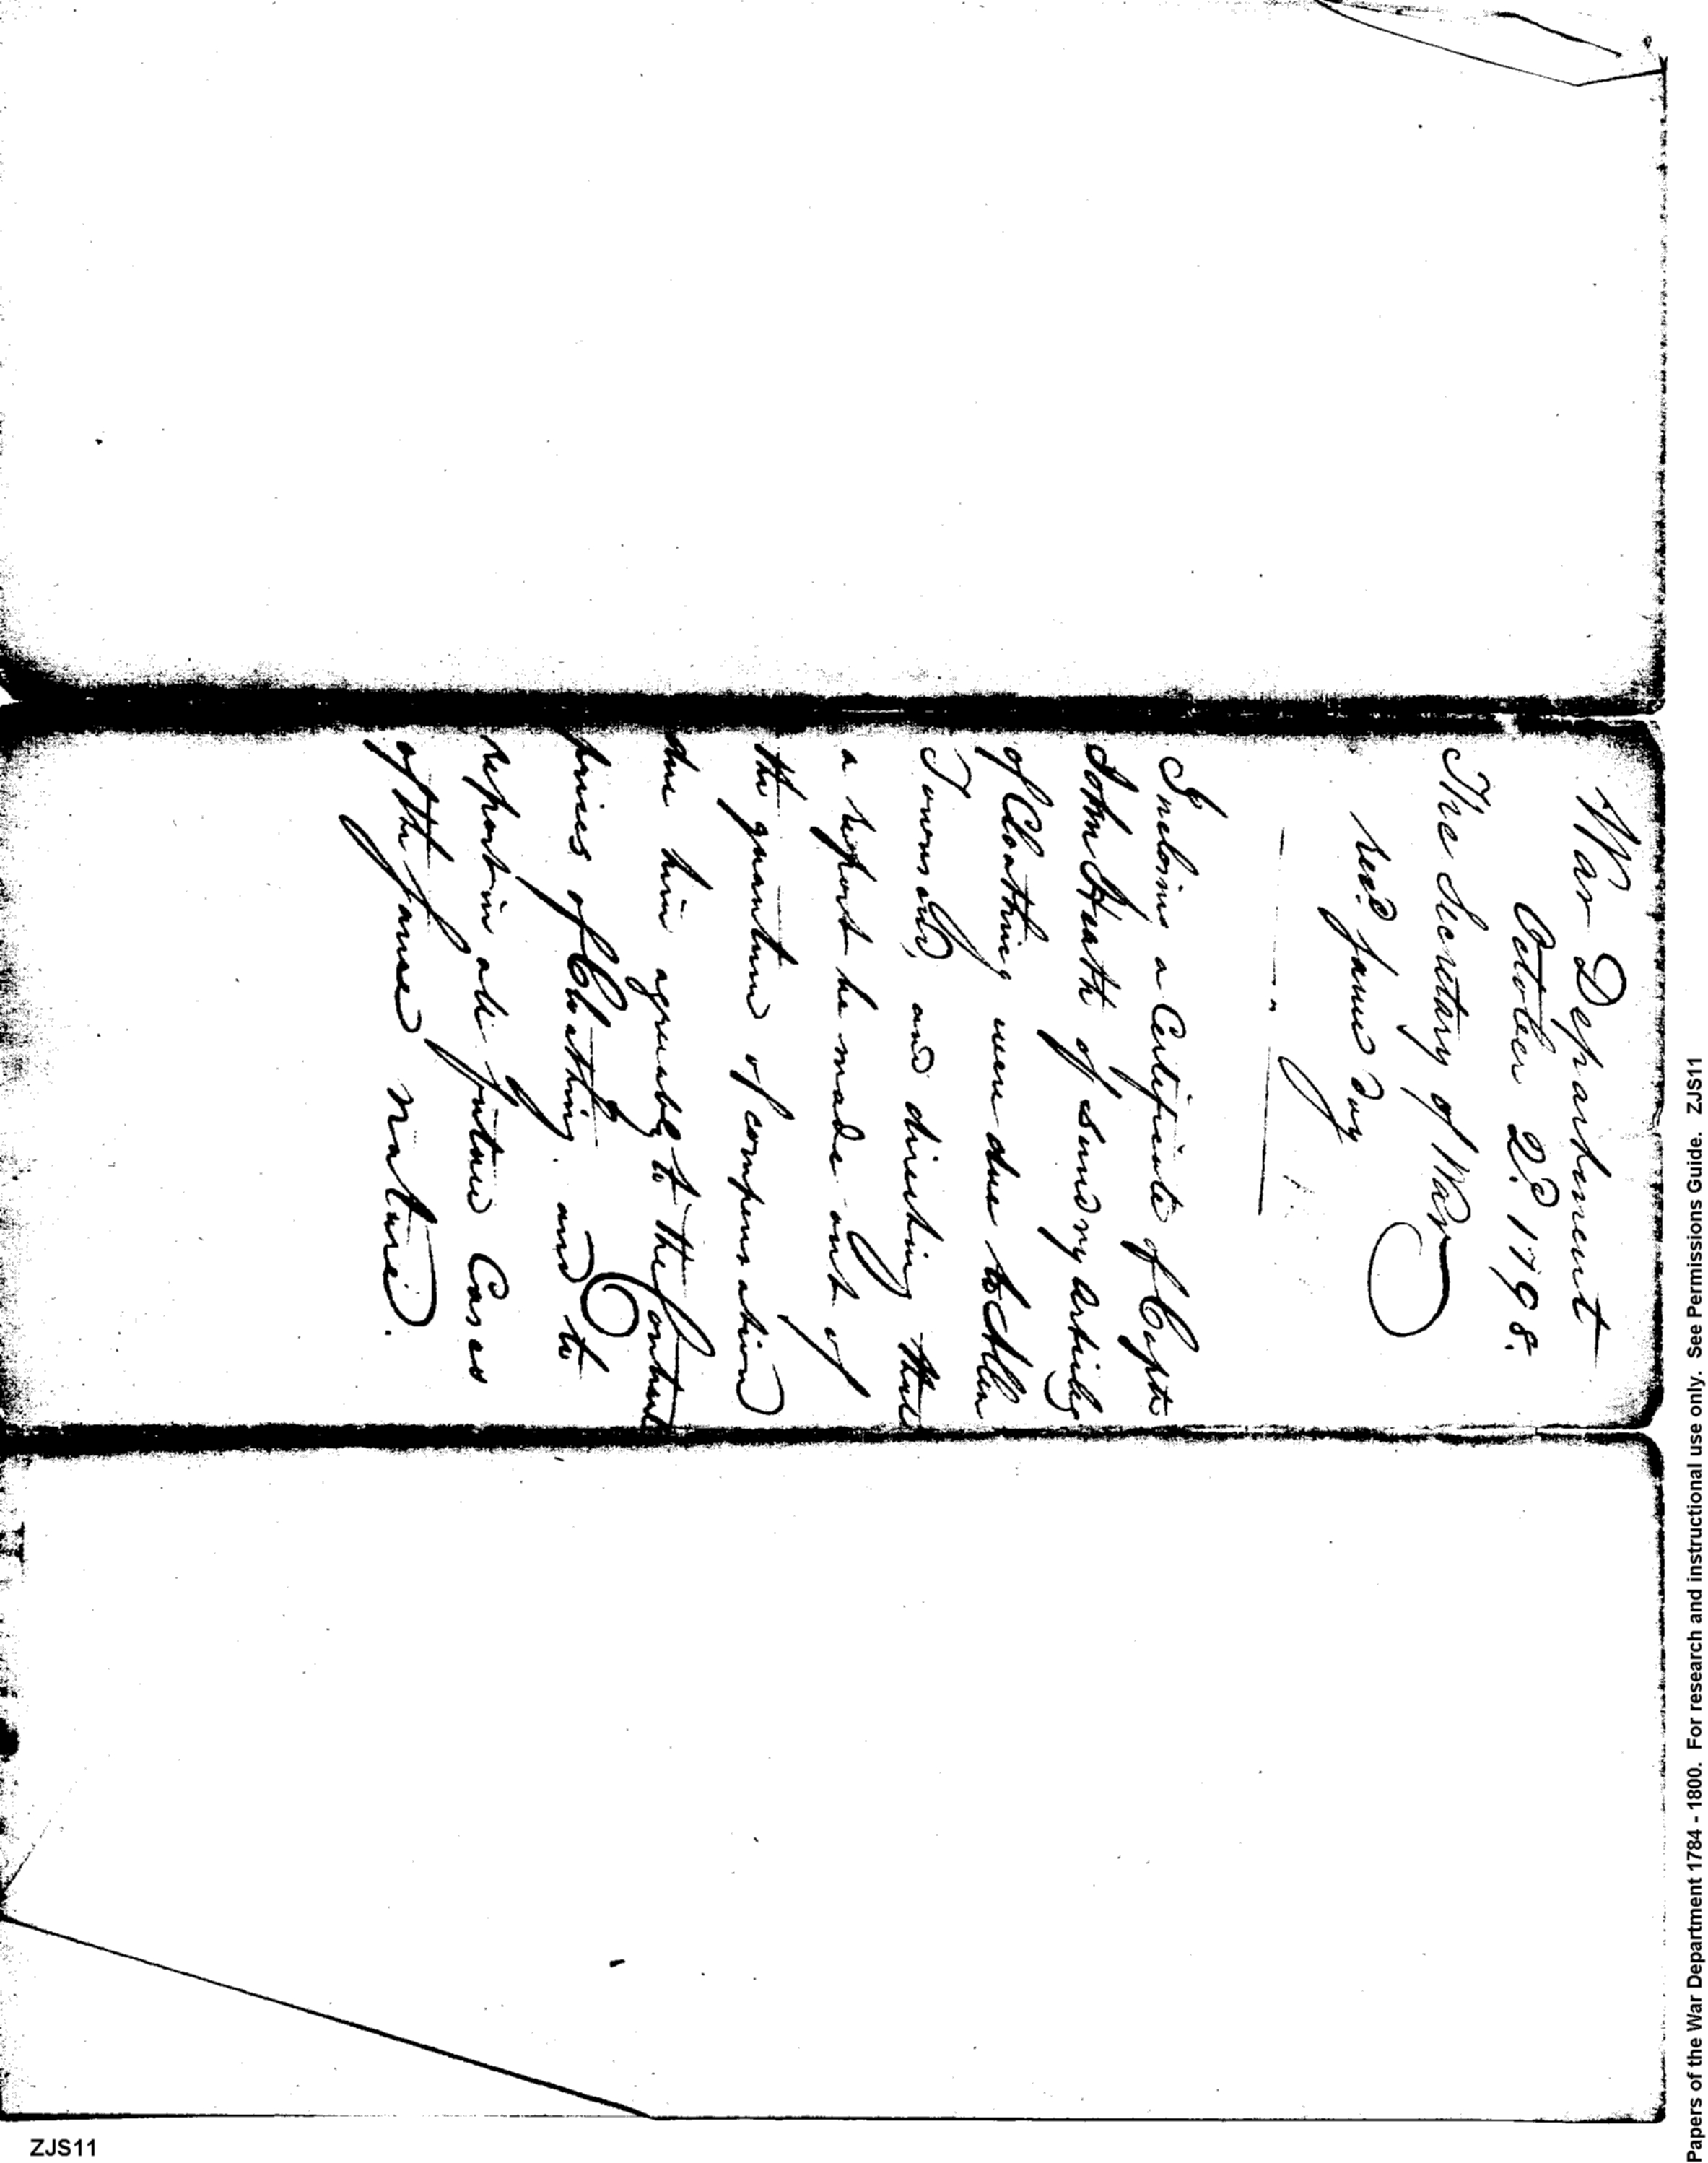 War Department
October 2d. 1798.
The Secretary of War
recd. same day
Inclosing a Certificate of Capt
John Heath of sundry articles
of Cloathing were due to Allen
Townsend, and directing that
a report be made out of
the quantum of compensation
due him agreeable to the Contract
prices of Cloathing. and to
report in all future Cases
of the same nature.
Papers of the War Department 1784 - 1800. For research and instructional use only. See Permissions Guide. ZJS11
ZJS11